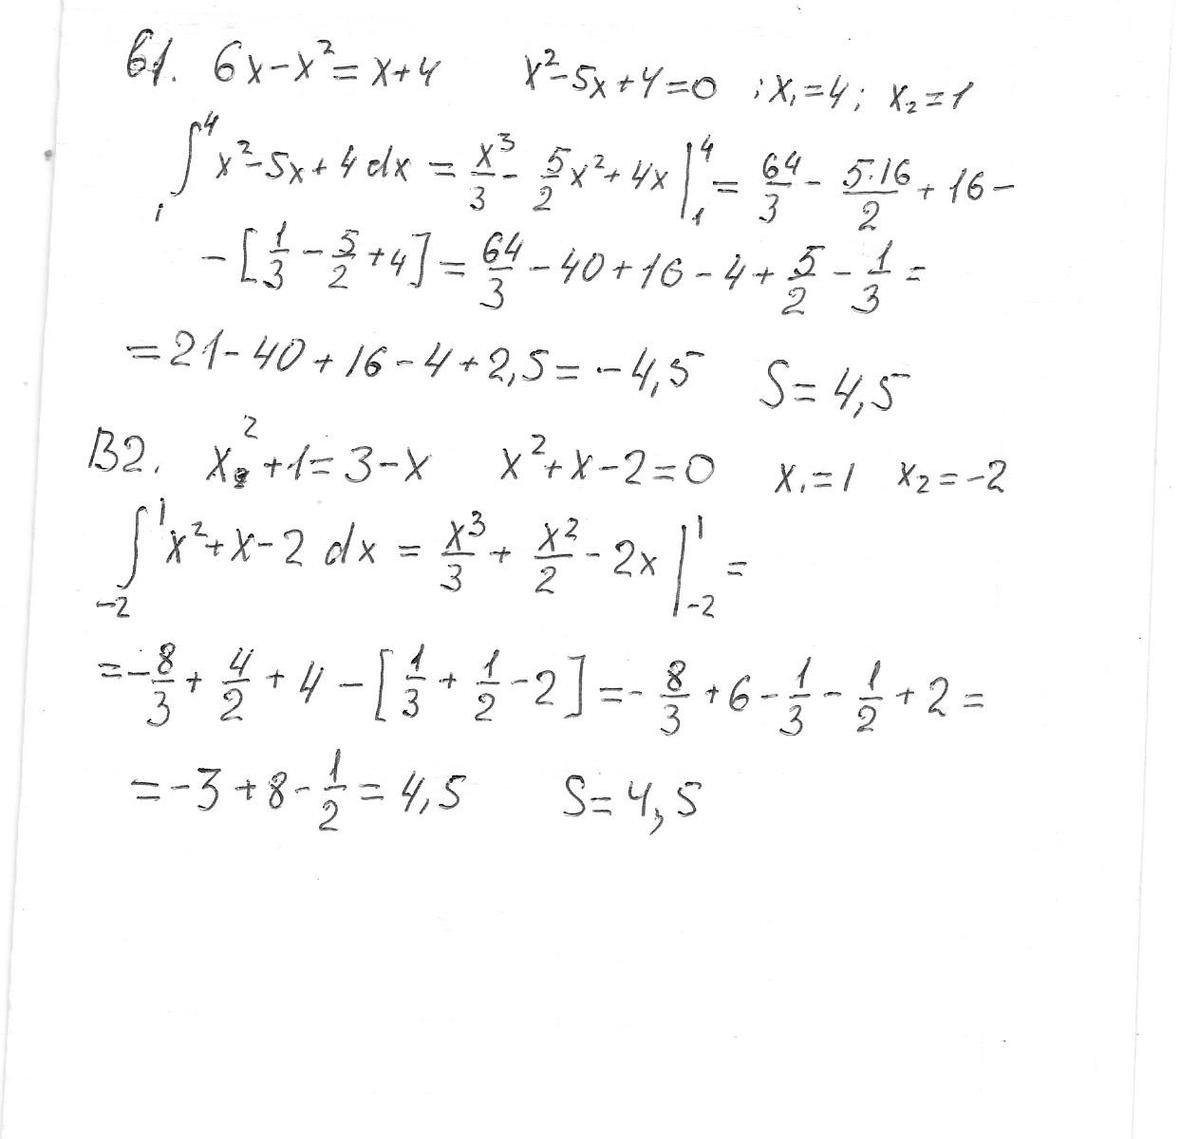 В1. 6x-x²=x+4 x²-5x+4=0 ; x₁=4; x₂=1
∫₁⁴ x²-5x+4 dx = x³/3 - 5/2 x²+4x |₁⁴ = 64/3 - 5·16/2 + 16-
-[1/3 - 5/2 +4] = 64/3 -40+16-4+ 5/2 - 1/3 =
=21-40+16-4+2,5=-4,5 S=4,5
В2. x²+1=3-x x²+x-2=0 x₁=1 x₂=-2
∫₋₂¹ x²+x-2 dx = x³/3 + x²/2 -2x |₋₂¹ =
=-8/3 + 4/2 +4-[1/3 + 1/2 -2]=- 8/3 +6- 1/3 - 1/2 +2=
=-3+8- 1/2 =4,5 S=4,5